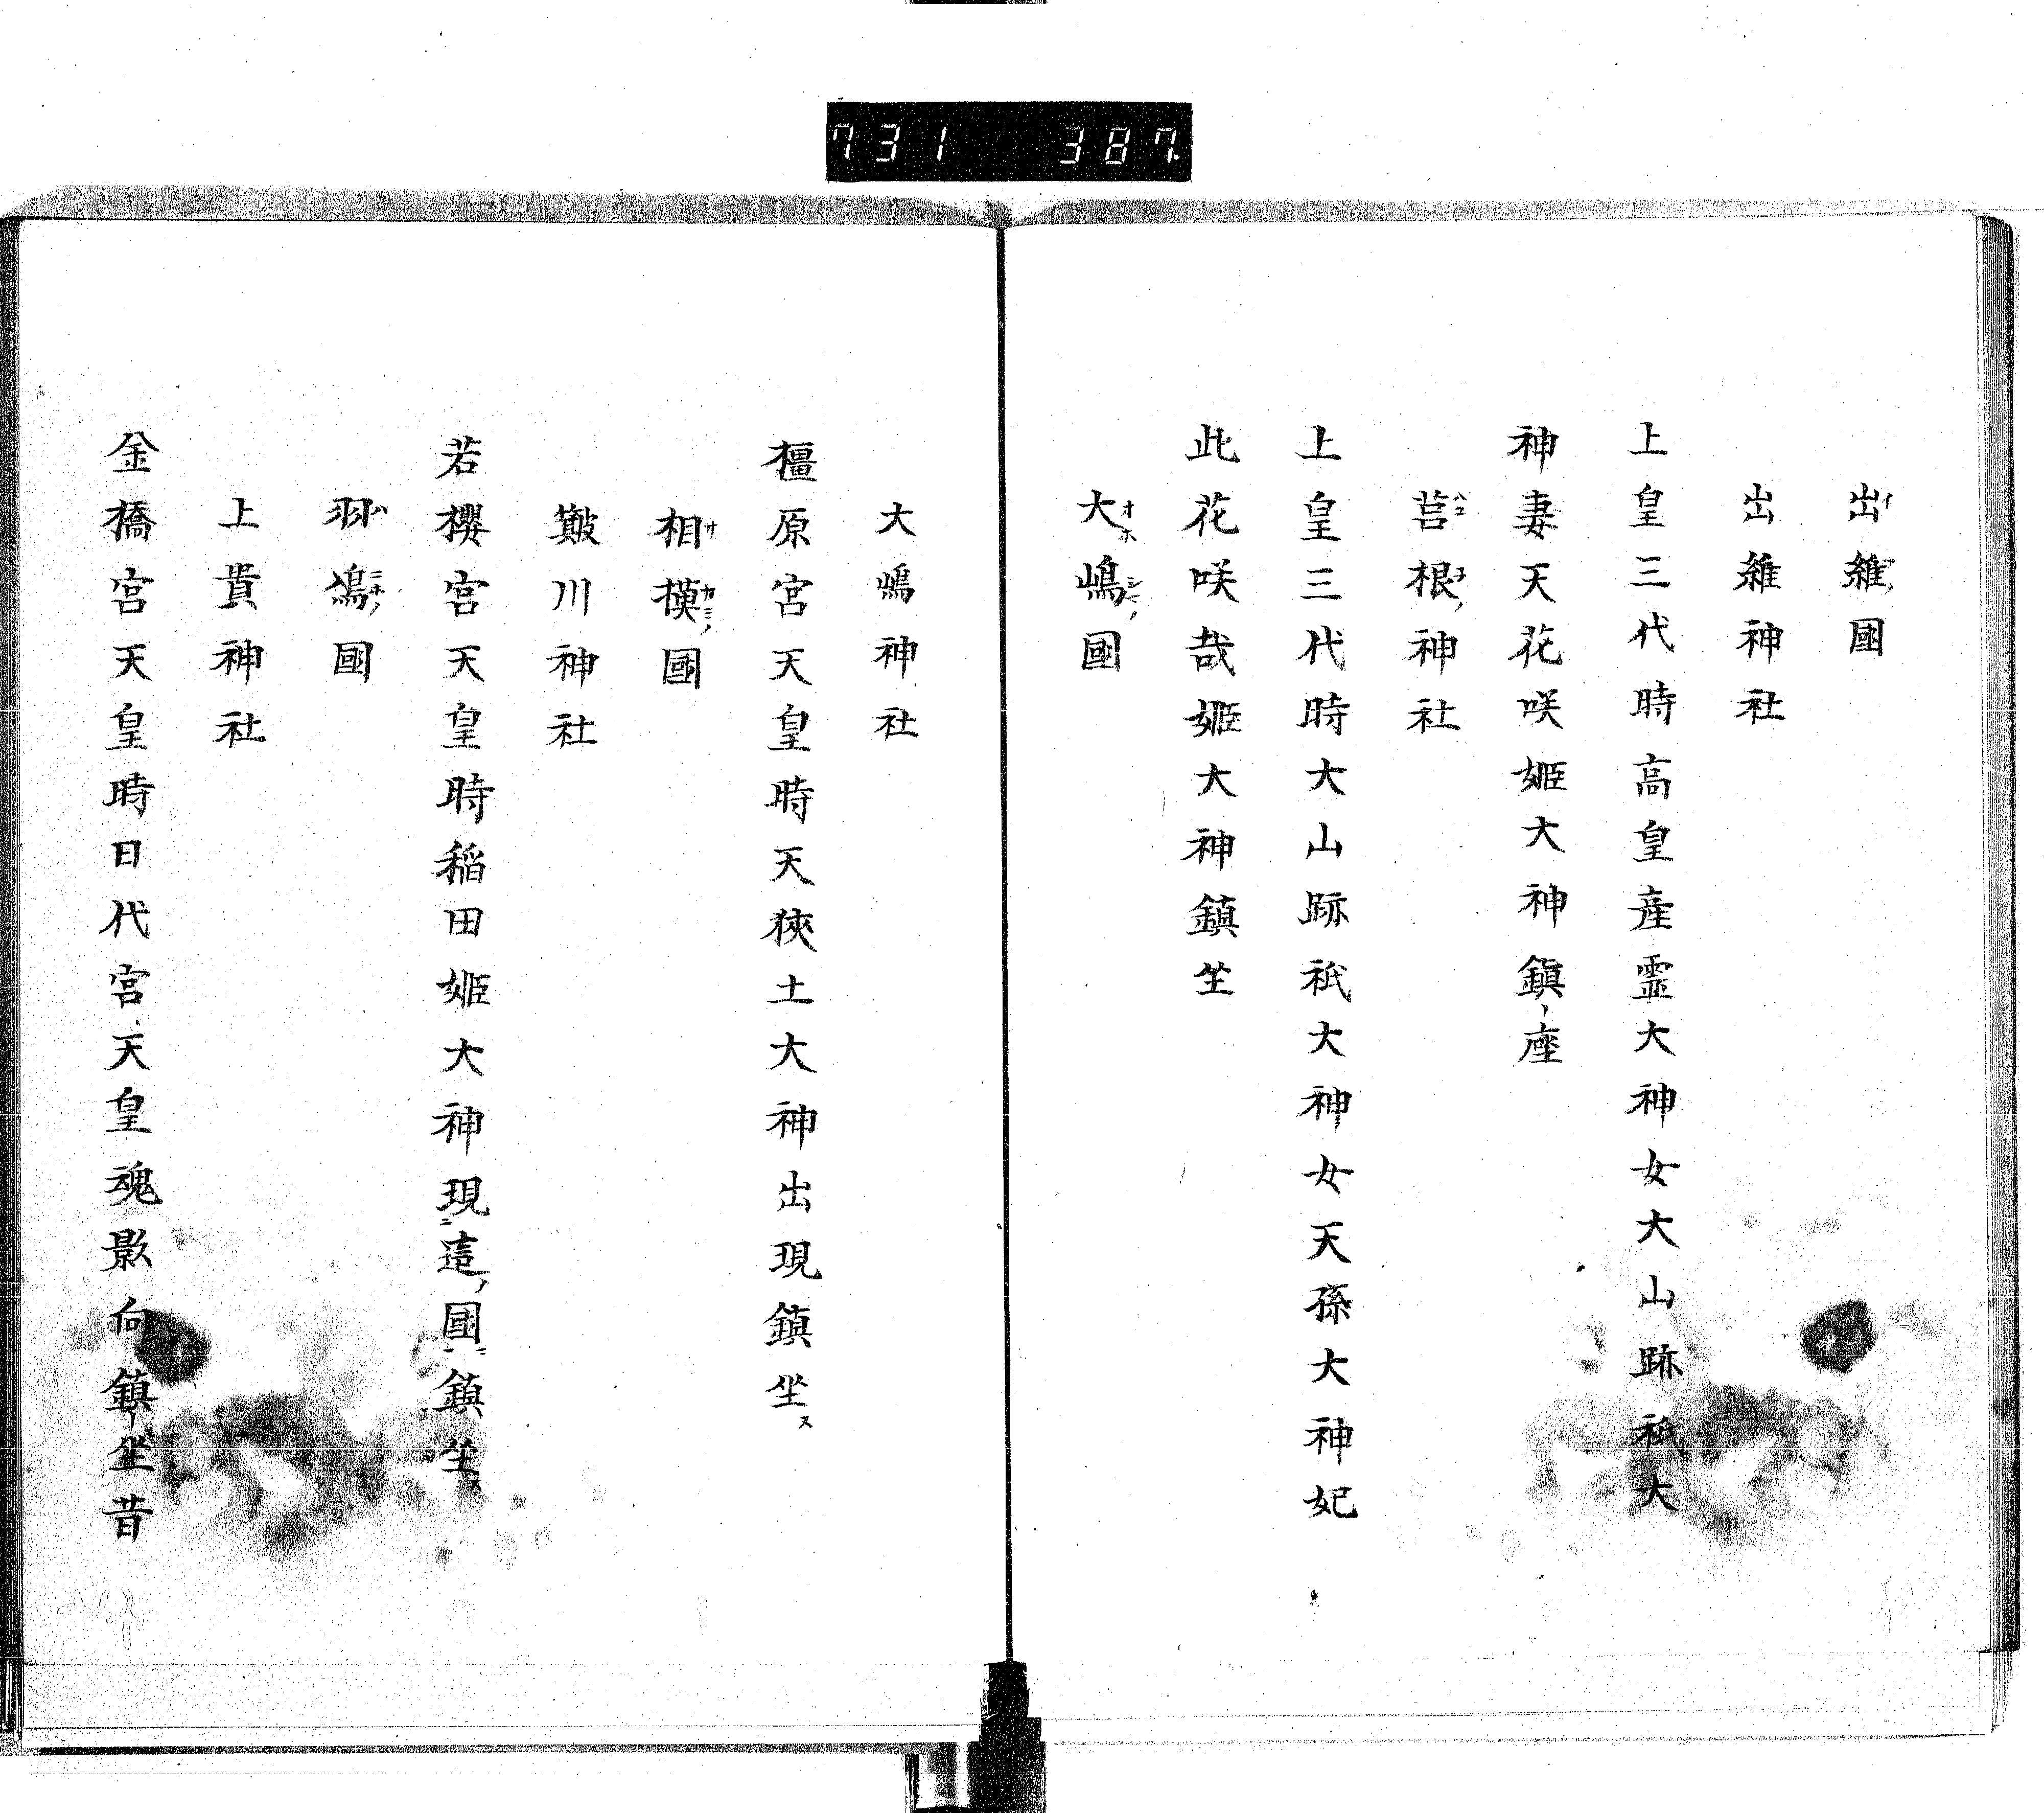 731 387
出雒國
出雒神社
上皇三代時高皇産霊大神女大山跡祇大
神妻天花咲姫大神鎮座
筥根神社
上皇三代時大山跡祇大神女天孫大神妃
此花咲哉姫大神鎮坐
大嶋國
大嶋神社
橿原宮天皇時天狹土大神出現鎮坐ス
相摸國
川神社
若櫻宮天皇時稲田姫大神現這國鎮坐ス
國
上貴神社
金橋宮天皇時日代宮天皇魂影向鎮坐昔